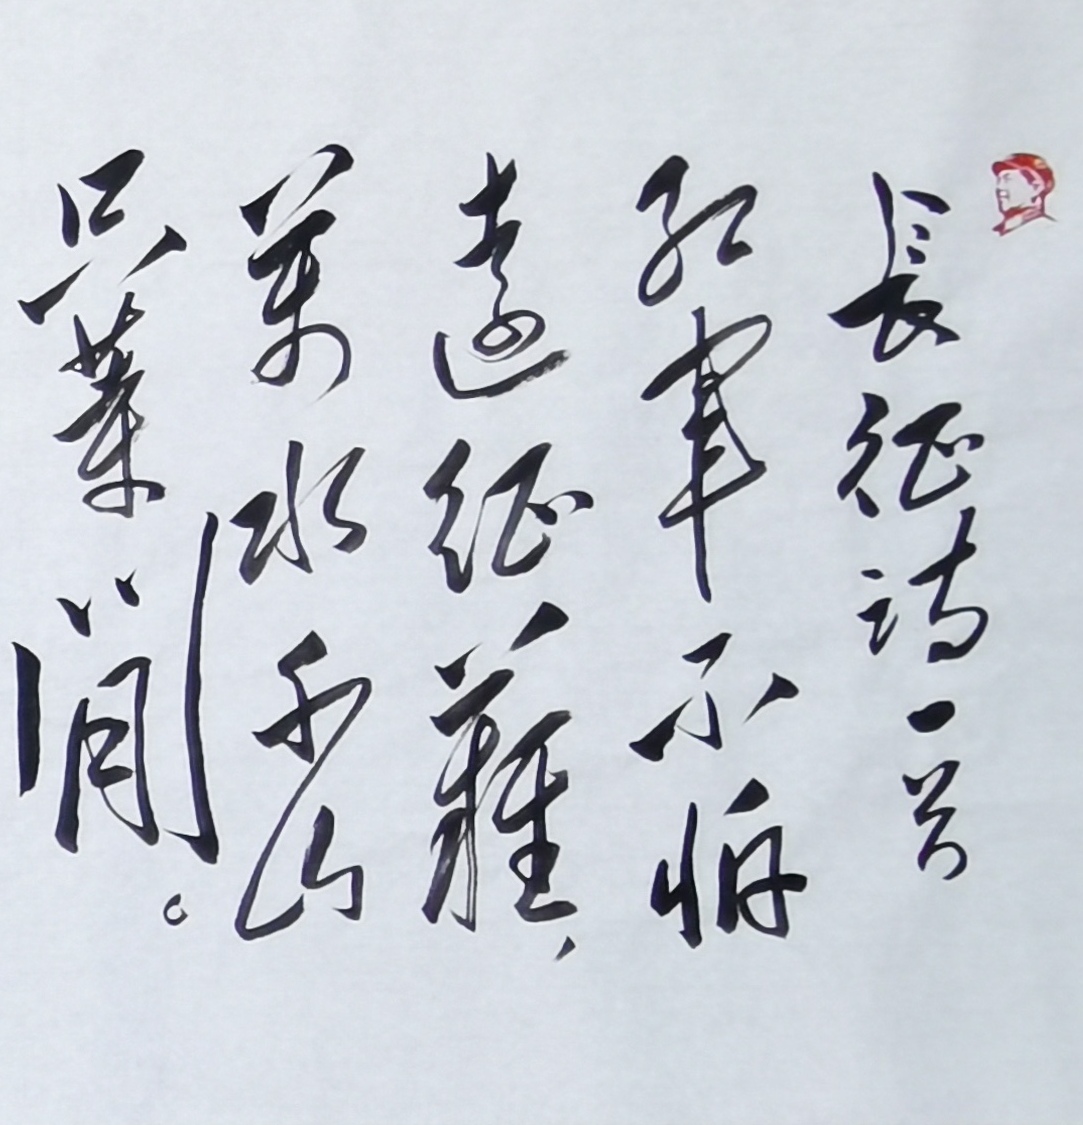 長征詩一首
紅軍不怕
遠征難，
萬水千山
只等閒。